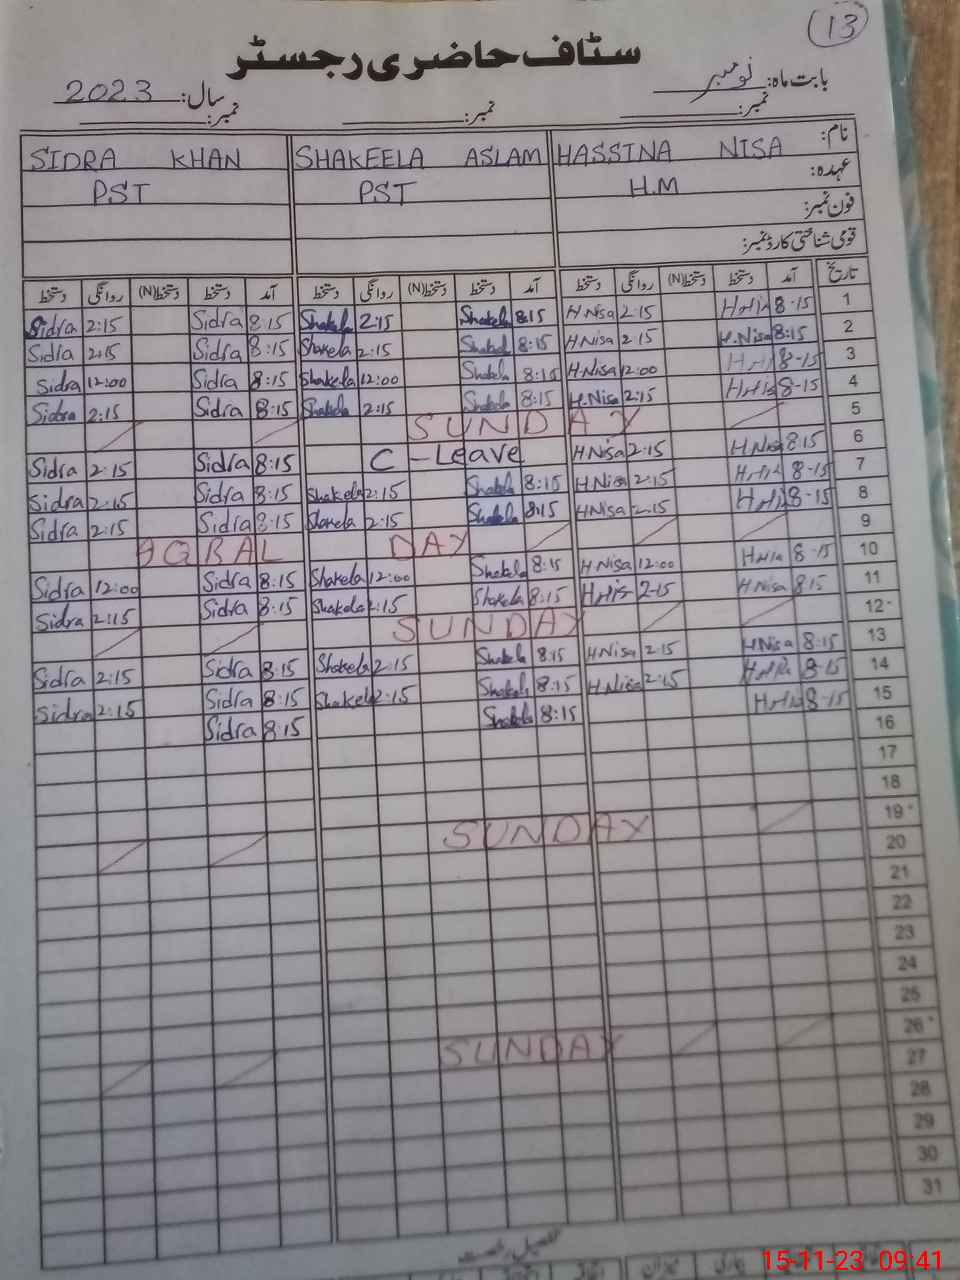 13
سٹاف حاضری رجسٹر
بابت ماہ: نومبر سال: 2023
نمبر: نمبر: نمبر:
نام: HASSINA NISA SHAKEELA ASLAM SIDRA KHAN
عہدہ: H.M PST PST
فون نمبر:
قومی شناختی کارڈ نمبر:
تاریخ آمد دستخط دستخط(N) روانگی دستخط آمد دستخط دستخط(N) روانگی دستخط آمد دستخط دستخط(N) روانگی دستخط
Sidra 2:15 Sidra 8:15 Shakela 2:15 Shakela 8:15 H.Nisa 2:15 8-15 1
Sidra 2:15 Sidra 8:15 Shakela 2:15 Shakela 8:15 H.Nisa 2:15 H.Nisa 8:15 2
Sidra 12:00 Sidra 8:15 Shakela 12:00 Shakela 8:15 H.Nisa 12:00 8-15 3
Sidra 2:15 Sidra 8:15 Shakela 2:15 Shakela 8:15 H.Nisa 2:15 8-15 4
SUNDAY 5
Sidra 2:15 Sidra 8:15 C - Leave H.Nisa 2:15 H.Nisa 8:15 6
Sidra 2:15 Sidra 8:15 Shakela 2:15 Shakela 8:15 H.Nisa 2:15 8-15 7
Sidra 2:15 Sidra 8:15 Shakela 2:15 Shakela 8:15 H.Nisa 2:15 8-15 8
IQBAL DAY 9
Sidra 12:00 Sidra 8:15 Shakela 12:00 Shakela 8:15 H.Nisa 12:00 8-15 10
Sidra 2:15 Sidra 8:15 Shakela 2:15 Shakela 8:15 2-15 H.Nisa 8:15 11
SUNDAY 12
Sidra 2:15 Sidra 8:15 Shakela 2:15 Shakela 8:15 H.Nisa 2:15 H.Nisa 8:15 13
Sidra 2:15 Sidra 8:15 Shakela 2:15 Shakela 8:15 H.Nisa 2:15 8-15 14
Sidra 8:15 Shakela 8:15 8-15 15
16
17
18
SUNDAY 19
20
21
22
23
24
25
SUNDAY 26
27
28
29
30
31
تفصیل رخصت
15-11-23 09:41